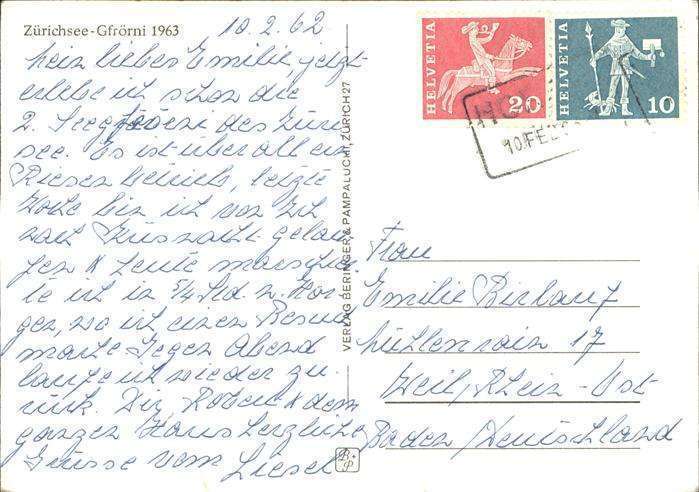 Zürichsee-Gfrörni 1963
10.2.62
Mein liebes Emilie, jetzt
erlebe ich schon die
2. Seegfrörni des Züri
see. Es ist überall ein
Riesen betrieb, letzte
Woche bin ich von
nach Küsnacht gelau
fen & heute marschier
te ich in 5/4 Std. n. Hor
gen, wo ich einen Besuch
machte. Gegen Abend
laufe ich wieder zu
rück. Dir, Robert & dem
ganzen Haus herzliche
Grüsse vom Liesel
VERLAG BERINGER & PAMPALUCHI, ZÜRICH 27
HELVETIA
20
HELVETIA
10
10.FEB.
Frau
Emilie Birlauf
Mühlenrain 17
Weil, Rhein-Ost
Baden / Deutschland